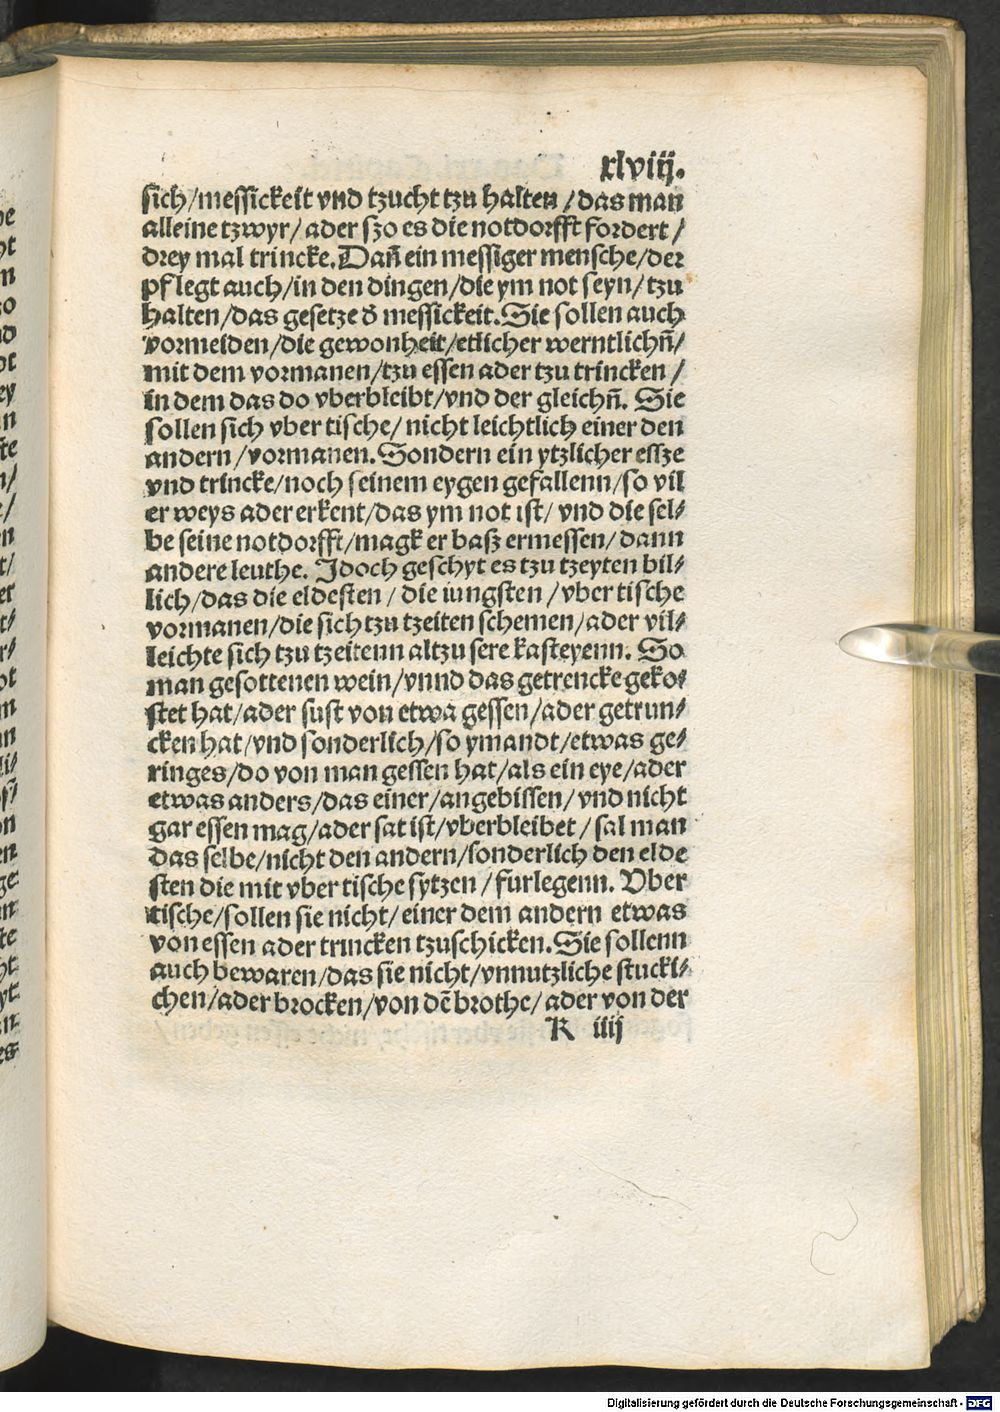 xlviij.
sich/messickeit vnd tzucht tzu halten/das man
alleine tzwyr/ader szo es die notdorfft fordert/
drey mal trincke.Dañ ein messiger mensche/der
pflegt auch/in den dingen/die ym not seyn/tzu
halten/das gesetze d̄ messickeit.Sie sollen auch
vormeiden/die gewonheit/etlicher werntlichñ/
mit dem vormanen/tzu essen ader tzu trincken/
in dem das do vberbleibt/vnd der gleichñ. Sie
sollen sich vber tische/nicht leichtlich einer den
andern/vormanen.Sondern ein ytzlicher essze
vnd trincke/noch seinem eygen gefallenn/so vil
er weys ader erkent/das ym not ist/vnd die sel⸗
be seine notdorfft/magk er basz ermessen/dann
andere leuthe. Jdoch geschyt es tzu tzeyten bil⸗
lich/das die eldesten/die iungsten/vber tische
vormanen/die sich tzu tzeiten schemen/ader vil⸗
leichte sich tzu tzeitenn altzu sere kasteyenn. So
man gesottenen wein/vnnd das getrencke geko⸗
stet hat/ader sust von etwa gessen/ader getrun⸗
cken hat/vnd sonderlich/so ymandt/etwas ge⸗
ringes/do von man gessen hat/als ein eye/ader
etwas anders/das einer/angebissen/vnd nicht
gar essen mag/ader sat ist/vberbleibet/sal man
das selbe/nicht den andern/sonderlich den elde
sten die mit vber tische sytzen/furlegenn. Vber
tische/sollen sie nicht/einer dem andern etwas
von essen ader trincken tzuschicken.Sie sollenn
auch bewaren/das sie nicht/vnnutzliche stucki⸗
chen/ader brocken/von dē brothe/ader von der
K iiij
Digitalisierung gefördert durch die Deutsche Forschungsgemeinschaft - DFG